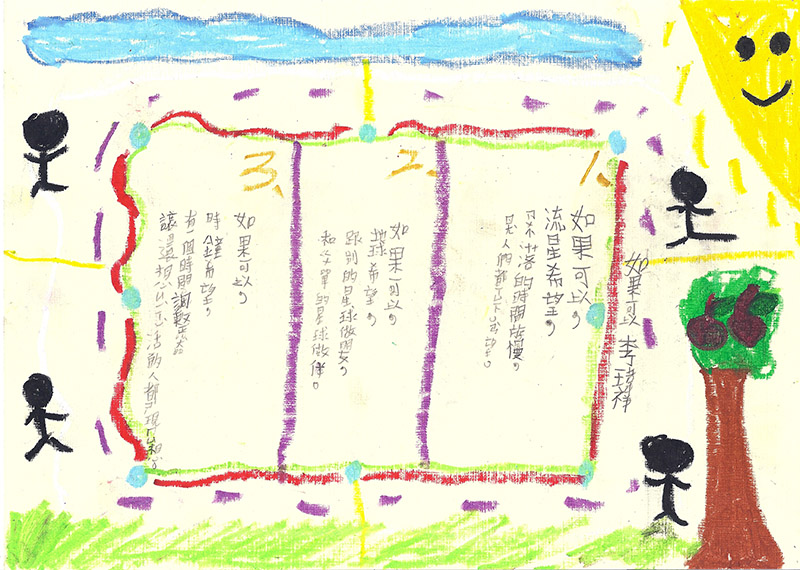 如果可以 李 祥
1、
如果可以，
流星希望，
落的時間放慢，
人們都可以
2、
如果可以，
地球希望，
跟別的星球做朋友，
和孤單的星球做伴。
3、
如果可以，
時鐘希望，
有一個時間調整器，
讓還想 活的人都